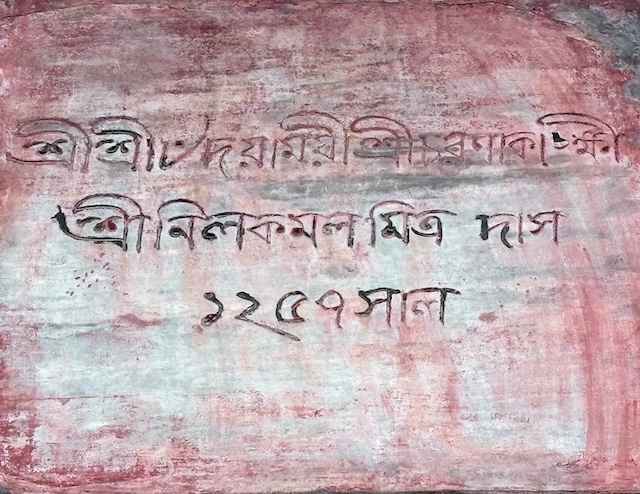 শ্রীশ্রী৺দয়াময়ীশ্রীচরণাকাঙ্ক্ষী
শ্রীনিলকমল মিত্র দাস
১২৫৭ সাল